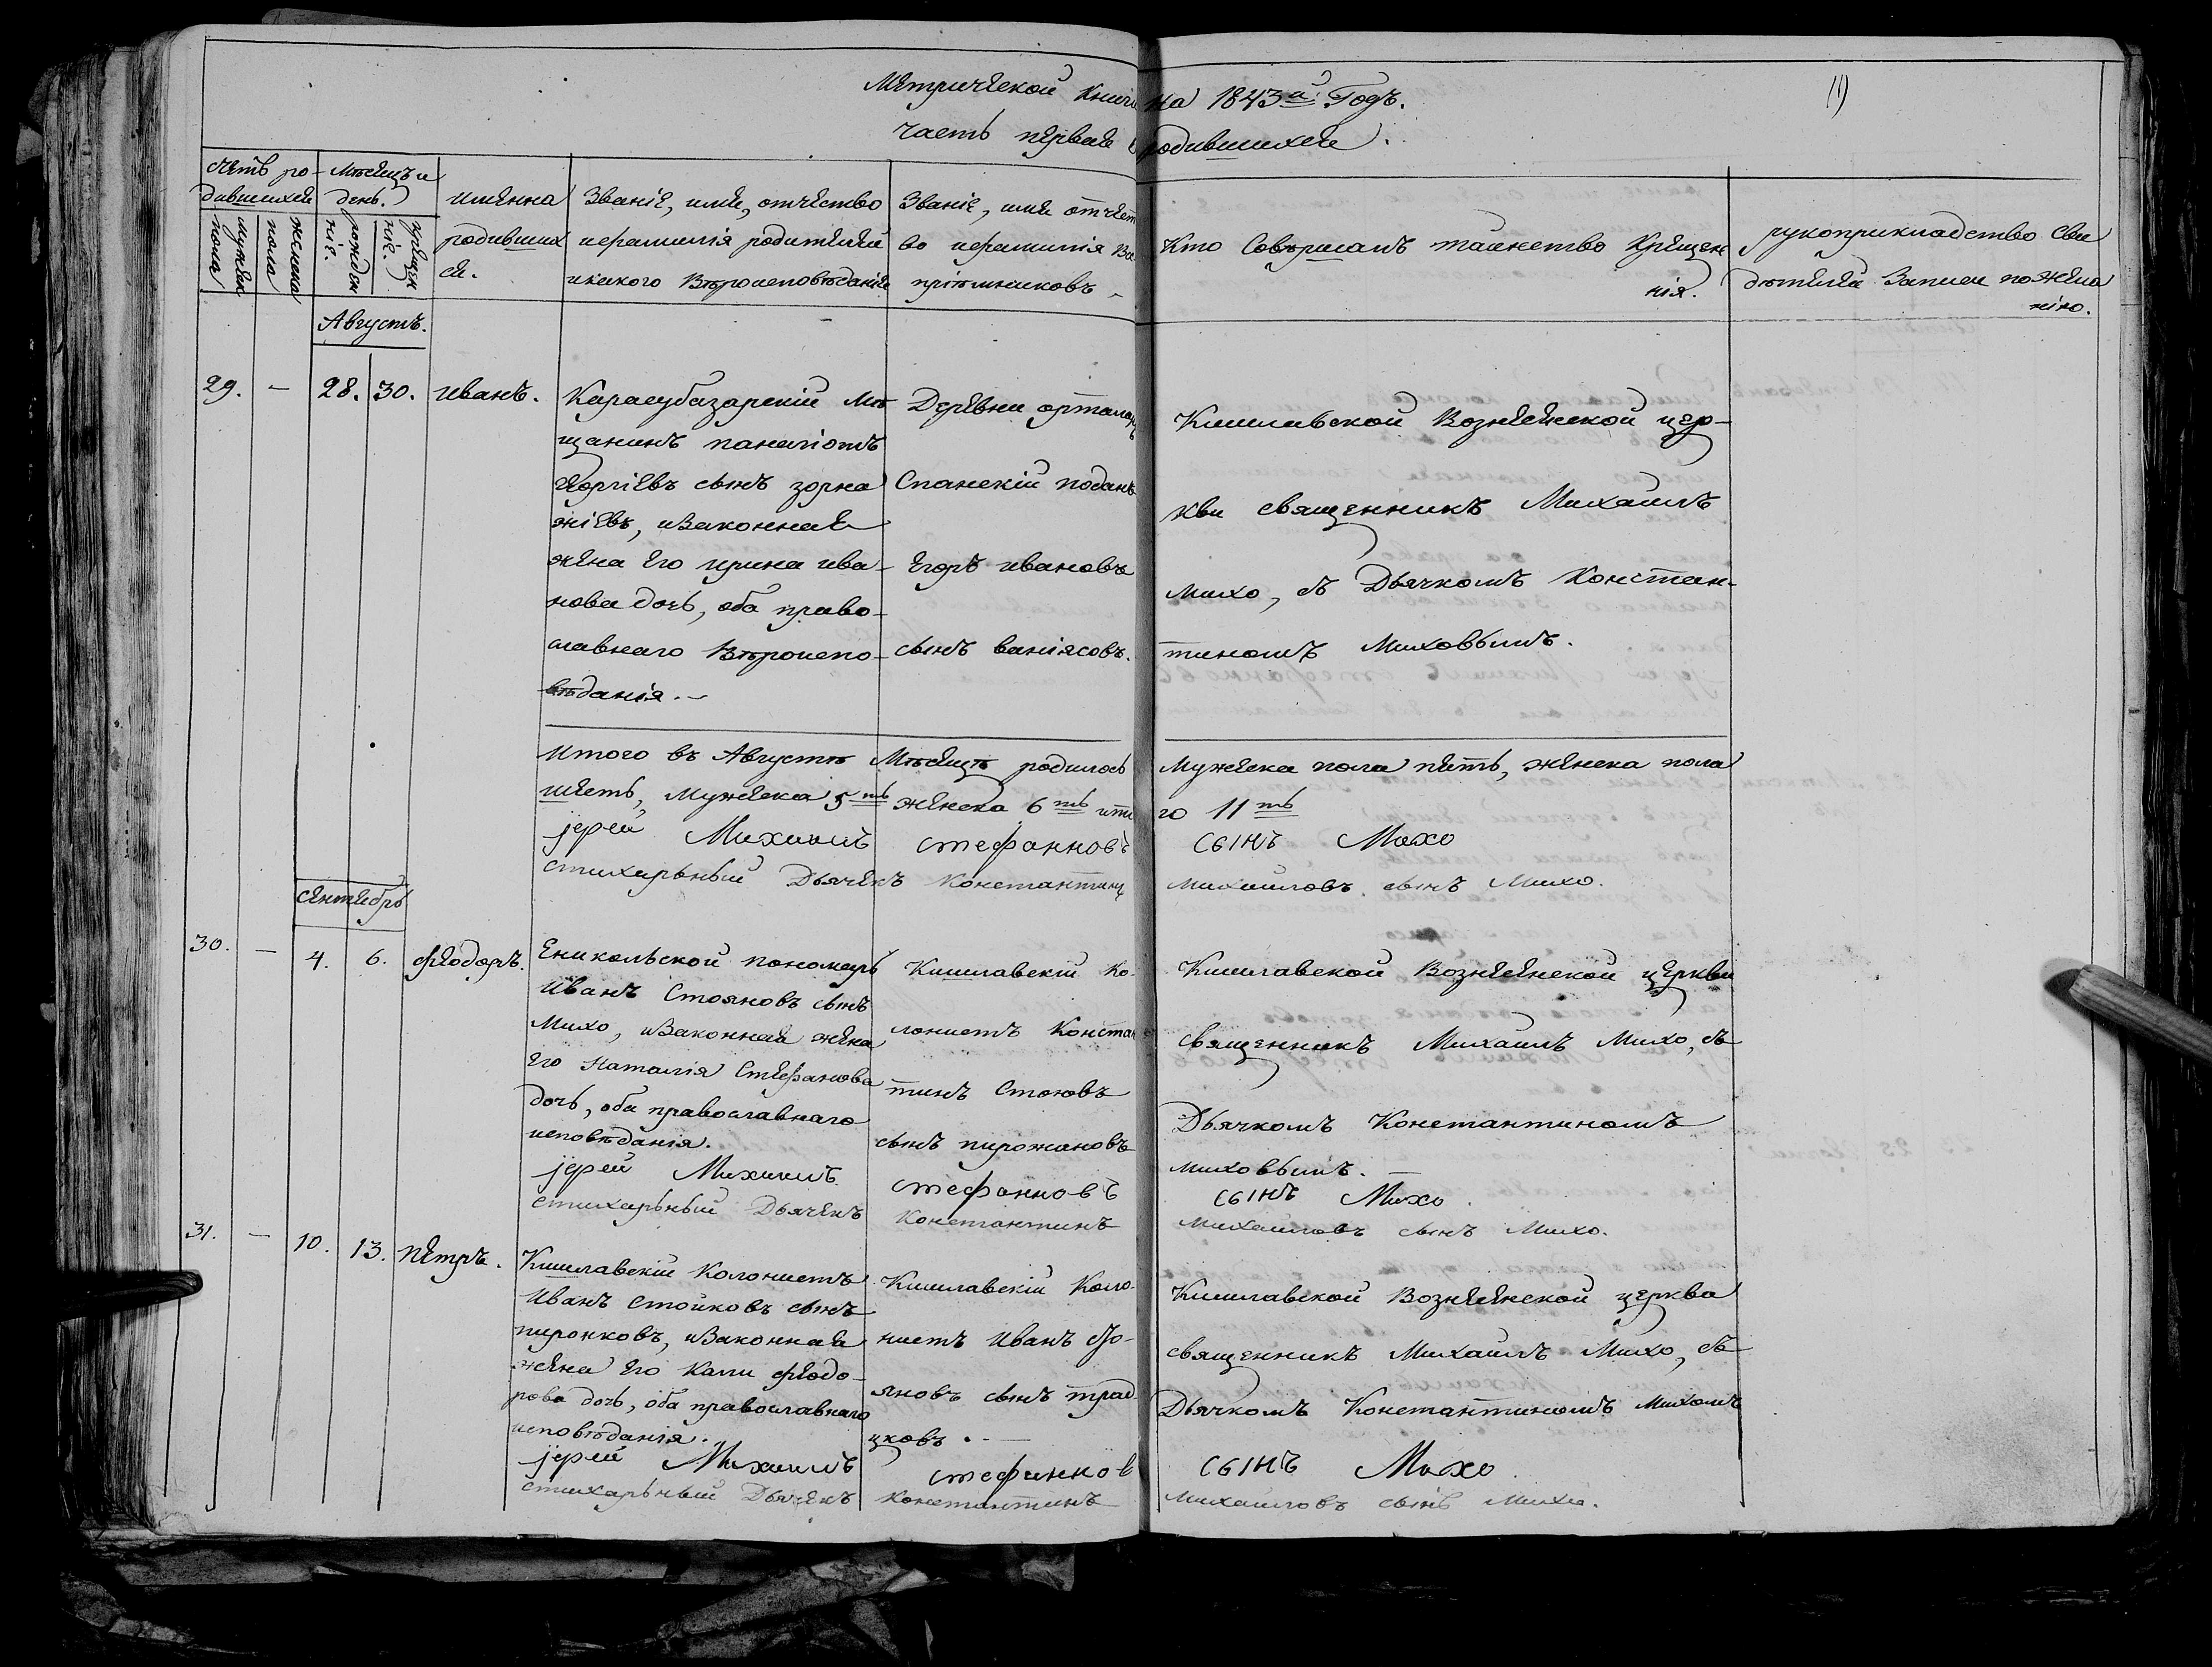 Метрической Книги на 1843й Годъ.
11
часть первая о родившихся.
Счетъ ро-
дившихся
мужеск
пола
женска
пола
Месяцъ и
день.
рожден
ніе.
крещен
ніе.
имянна
родивших
ся.
Званіе, имя, отчество
ифамилія родителей
икакого Вѣроисповѣданія
Званіе, имя отчест
во ифамилія Вос
пріѣмниковъ
Кто Совершалъ таинство Крещен
нія.
рукоприкладство Сви
дѣтелей Записи пожела
нію.
Августъ.
29. — 28. 30. иванъ.
Карасубазарскій мѣ
щанинъ панаіотъ
георгіевъ сынъ зорна
жіевъ, изаконная
жена его ирина ива-
нова дочь, оба право-
славнаго Вѣроиспо-
вѣданія. —
Деревни орталанъ
Спанскій подань
Егоръ ивановъ
сынъ ваніясовъ.
Кишлавской Вознесенской цер-
кви священникъ Михаилъ
михо, съ Дьячкомъ Констан-
тиномъ Миховымъ.
Итого въ Августѣ Мѣсяцѣ родилось мужеска пола пять, женска пола
шесть, мужеска 5ть женска 6ть ито го 11ть
іерей Михаилъ стефановъ сынъ Михо
стихарьный Дьячекъ Константинъ михайловъ сынъ Михо.
Сентябрь
30. — 4. 6. феодоръ.
Еникольской пономарь
иванъ Стояновъ сынъ
михо, изаконная жена
его наталія Стефанова
дочь, оба православнаго
исповѣданія.
Кишлавскій ко-
лонистъ Констан
тинъ Стоювъ
сынъ пирожановъ
Кишлавской Вознесенской церкви
священникъ Михаилъ Михо, съ
Дьячкомъ Константиномъ
миховымъ. —
іерей Михаилъ стефановъ сынъ Михо
стихарьный Дьячекъ Константинъ михайловъ сынъ Михо.
31. — 10. 13. петръ.
Кишлавскій колонистъ
Иванъ стойковъ сынъ
пиронковъ, изаконная
жена его кали феодо-
рова дочь, оба православнаго
исповѣданія.
Кишлавскій Коло-
нистъ иванъ сто-
яновъ сынъ трад
цковъ. —
Кишлавской Вознесенской церкви
священникъ Михаилъ Михо, съ
Дьячкомъ Константиномъ михомъ
іерей Михаилъ стефанов сынъ Михо
стихарьный Дьячекъ константинъ михайловъ сынъ михо.